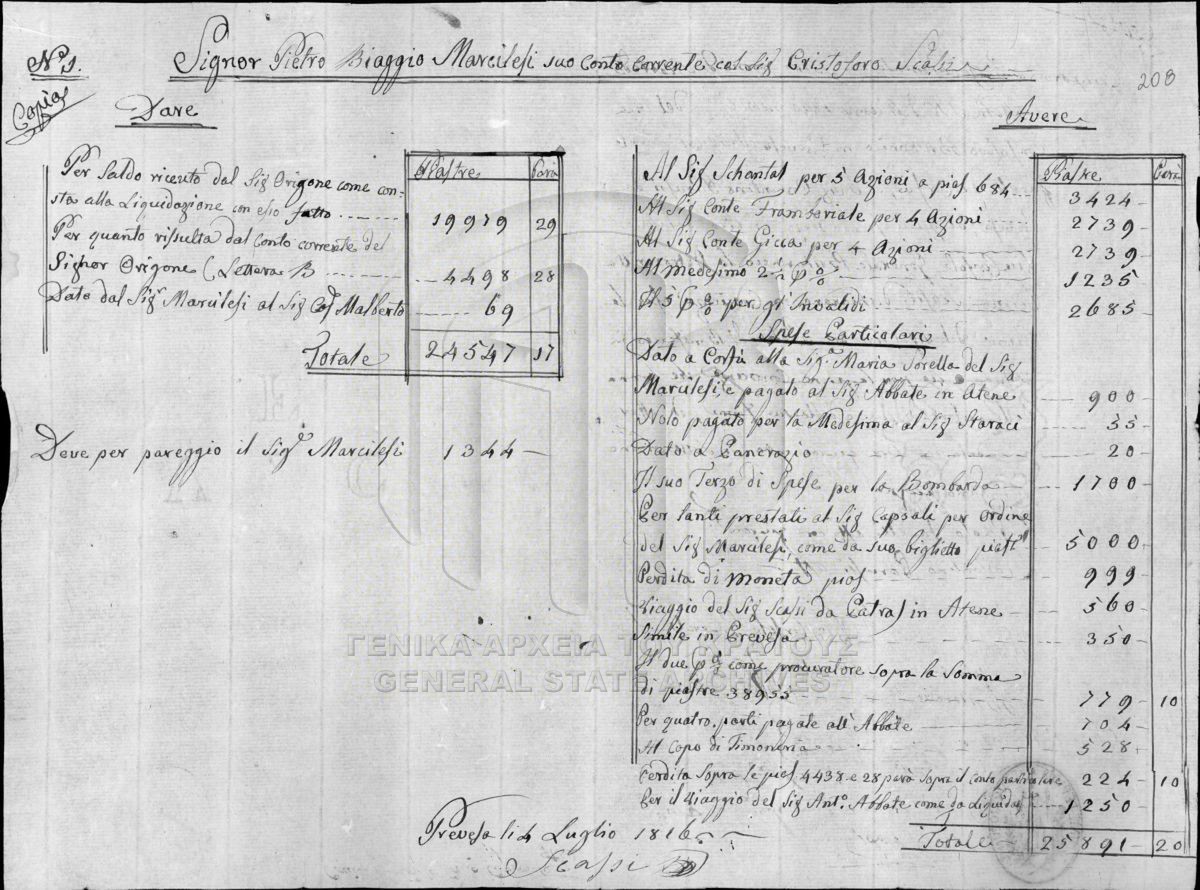 Nº 1.
Copia
Signor Pietro Biaggio Marcilesi suo Conto Corrente col Sig Cristoforo Scassi
208
Dare
Piastre Para
Per Saldo ricevuto dal Sig Origone come con-
sta alla Liquidazione con esso fatto 19979 29
Per quanto rissulta dal Conto corrente del
Signor Origone Lettera B 4498 28
Dato dal Sigr Marcilesi al Sig Malberto 69
Totale 24547 17
Deve per pareggio il Sigr Marcilesi 1344 —
Avere
Piastre Para
Al Sig Schantal per 5 Azioni a pias 684 3424
Al Sig Conte per 4 Azioni 2739
Al Sig Conte Gicca per 4 Azioni 2739
Al Medesimo 2 1235
Il 5 per gl' Invalidi 2685
Spese Particolari
Dato a Corfù alla Sigª Maria Sorella del Sig
Marcilesi, e pagato al Sig Abbate in Atene 900
Nolo pagato per la Medesima al Sig Staraci 35
Dato a Pancrazio 20
Il suo Terzo di Spese per la Bombarda 1700
Per tanti prestati al Sig Capsali per ordine
del Sig Marcilesi, come da suo biglietto piast 5000
Perdita di moneta pias 999
Viaggio del Sig Scassi da Patras in Atene 560
Simile in Prevesa 350
Il due come procuratore sopra la Somma
di piastre 38955 779 10
Per quatro parti pagate all' Abbate 704
Al Capo di Timoneria 528
Perdita sopra le pias 4438 e 28 para sopra il conto particolare 224 10
Per il Viaggio del Sig Antº. Abbate come da Liquidaz 1250
Totale 25891 20
Prevesa li 4 Luglio 1816
Scassi
ΓΕΝΙΚΑ ΑΡΧΕΙΑ ΤΟΥ ΚΡΑΤΟΥΣ
GENERAL STATE ARCHIVES